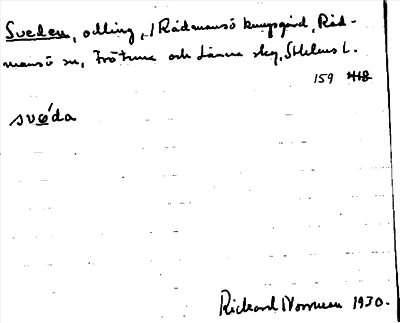 Sveden, odling, i Rådmansö kungsgård, Råd-
mansö sn, Frötuna och Länna skg, Sthlms l.
159 418
svéda
Rickard Norman 1930.